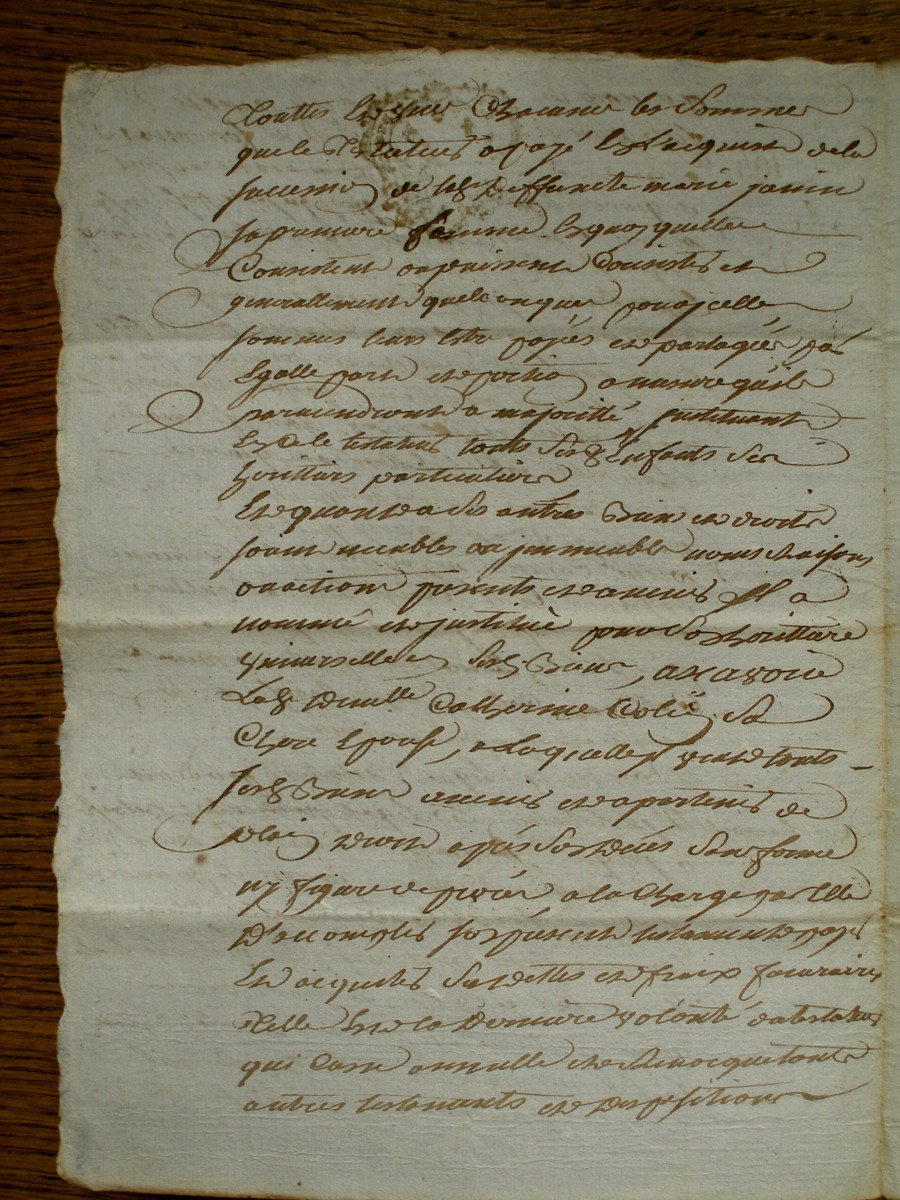 touttes et une chacune les sommes
que le testateur a payé à l'acquit de la
succession de lad. deffuncte marie janin
sa premiere femme lesquoy quelle
Consistent ou puissent Consister et
generallement quelconques pour jcelle
sommes leurs estre payés et partagée par
Egalle part et portion a mesure quils
parviendront a majorité, jnstituant
led. testateur touts sesd. Enfants ses
heritiers particuliers
Et quant a ses autres Biens et droits
soint meubles ou jmmeubles noms raisons
ou actions presents et avenir Jl a
nommé et jnstitué pour son heritiere
Universelle en sesd. Biens, a scavoir
Lad. Catherine sa
Chere Epouse, a Laquelle veut touts
sesd. Biens venir et apartenir de
plein droit après son decés sans forme
ny figure de procés, a la Charge par Elle
D'accomplir son present testament payer
Et acquiter ses dettes et fraix funeraires
telle Est la Derniere volonté du testateur
qui Casse annulle et revocque touts
autres testaments et dispositions